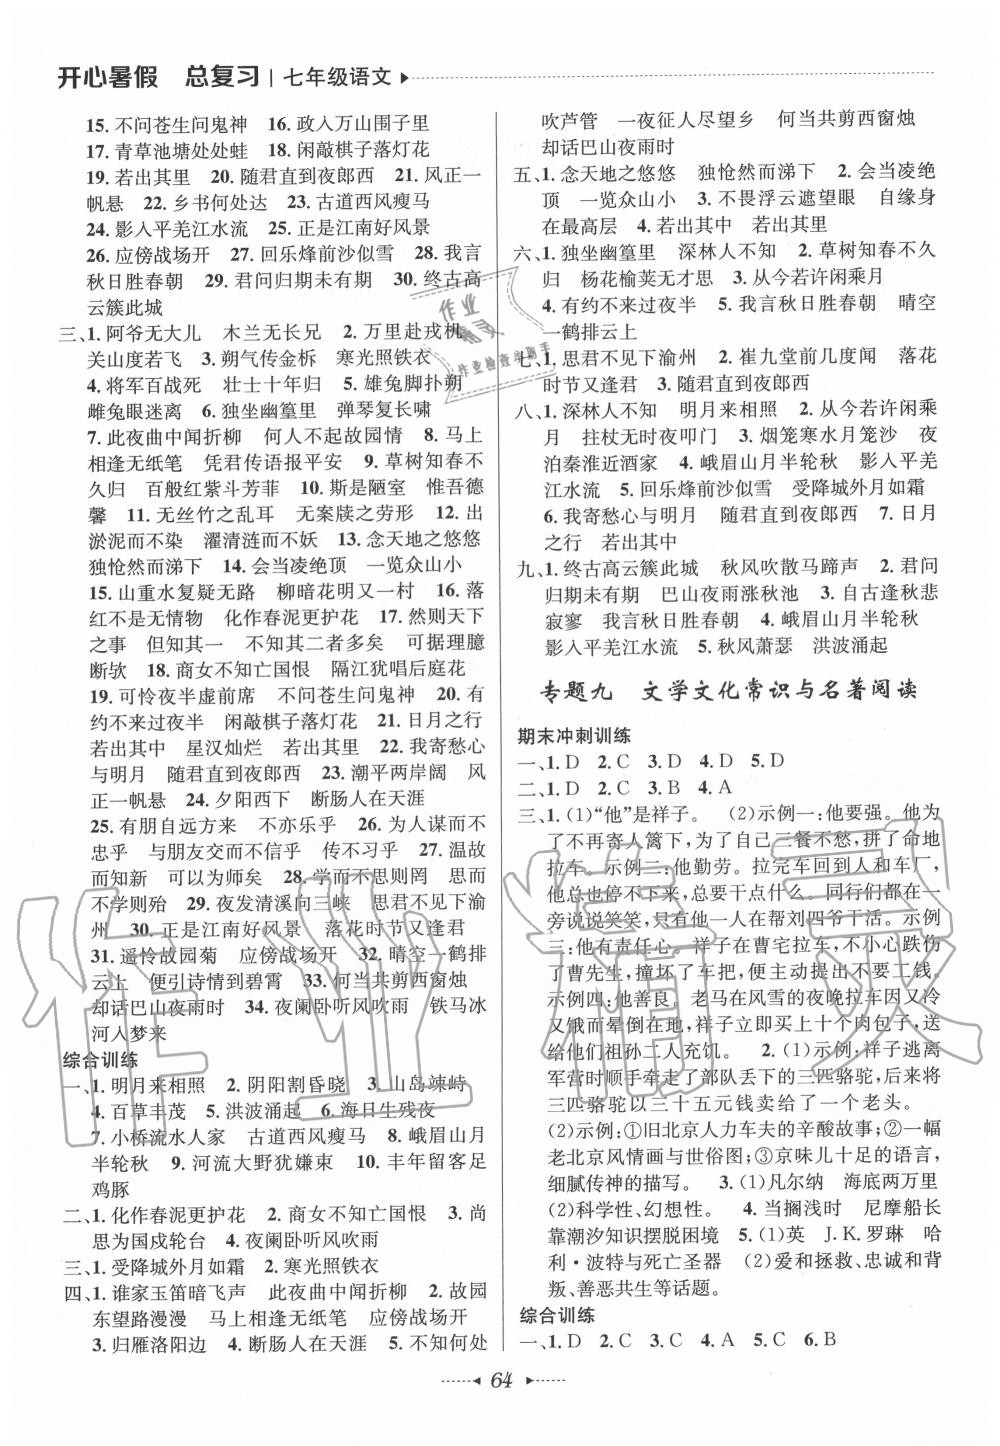 开心暑假 总复习 | 七年级语文
15. 不问苍生问鬼神 16. 政入万山围子里
17. 青草池塘处处蛙 18. 闲敲棋子落灯花
19. 若出其里 20. 随君直到夜郎西 21. 风正一
帆悬 22. 乡书何处达 23. 古道西风瘦马
24. 影入平羌江水流 25. 正是江南好风景
26. 应傍战场开 27. 回乐烽前沙似雪 28. 我言
秋日胜春朝 29. 君问归期未有期 30. 终古高
云簇此城
三、1. 阿爷无大儿 木兰无长兄 2. 万里赴戎机
关山度若飞 3. 朔气传金柝 寒光照铁衣
4. 将军百战死 壮士十年归 5. 雄兔脚扑朔
雌兔眼迷离 6. 独坐幽篁里 弹琴复长啸
7. 此夜曲中闻折柳 何人不起故园情 8. 马上
相逢无纸笔 凭君传语报平安 9. 草树知春不
久归 百般红紫斗芳菲 10. 斯是陋室 惟吾德
馨 11. 无丝竹之乱耳 无案牍之劳形 12. 出
淤泥而不染 濯清涟而不妖 13. 念天地之悠悠
独怆然而涕下 14. 会当凌绝顶 一览众山小
15. 山重水复疑无路 柳暗花明又一村 16. 落
红不是无情物 化作春泥更护花 17. 然则天下
之事 但知其一 不知其二者多矣 可据理臆
断欤 18. 商女不知亡国恨 隔江犹唱后庭花
19. 可怜夜半虚前席 不问苍生问鬼神 20. 有约
不来过夜半 闲敲棋子落灯花 21. 日月之行
若出其中 星汉灿烂 若出其里 22. 我寄愁心
与明月 随君直到夜郎西 23. 潮平两岸阔 风
正一帆悬 24. 夕阳西下 断肠人在天涯
25. 有朋自远方来 不亦乐乎 26. 为人谋而不
忠乎 与朋友交而不信乎 传不习乎 27. 温故
而知新 可以为师矣 28. 学而不思则罔 思而
不学则殆 29. 夜发清溪向三峡 思君不见下渝
州 30. 正是江南好风景 落花时节又逢君
31. 遥怜故园菊 应傍战场开 32. 晴空一鹤排
云上 便引诗情到碧霄 33. 何当共剪西窗烛
却话巴山夜雨时 34. 夜阑卧听风吹雨 铁马冰
河入梦来
综合训练
一、1. 明月来相照 2. 阴阳割昏晓 3. 山岛竦峙
4. 百草丰茂 5. 洪波涌起 6. 海日生残夜
7. 小桥流水人家 古道西风瘦马 8. 峨眉山月
半轮秋 9. 河流大野犹嫌束 10. 丰年留客足
鸡豚
二、1. 化作春泥更护花 2. 商女不知亡国恨 3. 尚
思为国戍轮台 4. 夜阑卧听风吹雨
三、1. 受降城外月如霜 2. 寒光照铁衣
四、1. 谁家玉笛暗飞声 此夜曲中闻折柳 2. 故园
东望路漫漫 马上相逢无纸笔 应傍战场开
3. 归雁洛阳边 4. 断肠人在天涯 5. 不知何处
吹芦管 一夜征人尽望乡 何当共剪西窗烛
却话巴山夜雨时
五、1. 念天地之悠悠 独怆然而涕下 2. 会当凌绝
顶 一览众山小 3. 不畏浮云遮望眼 自缘身
在最高层 4. 若出其中 若出其里
六、1. 独坐幽篁里 深林人不知 2. 草树知春不久
归 杨花榆荚无才思 3. 从今若许闲乘月
4. 有约不来过夜半 5. 我言秋日胜春朝 晴空
一鹤排云上
七、1. 思君不见下渝州 2. 崔九堂前几度闻 落花
时节又逢君 3. 随君直到夜郎西
八、1. 深林人不知 明月来相照 2. 从今若许闲乘
月 拄杖无时夜叩门 3. 烟笼寒水月笼沙 夜
泊秦淮近酒家 4. 峨眉山月半轮秋 影入平羌
江水流 5. 回乐烽前沙似雪 受降城外月如霜
6. 我寄愁心与明月 随君直到夜郎西 7. 日月
之行 若出其中
九、1. 终古高云簇此城 秋风吹散马蹄声 2. 君问
归期未有期 巴山夜雨涨秋池 3. 自古逢秋悲
寂寥 我言秋日胜春朝 4. 峨眉山月半轮秋
影入平羌江水流 5. 秋风萧瑟 洪波涌起
专题九 文学文化常识与名著阅读
期末冲刺训练
一、1. D 2. C 3. D 4. D 5. D
二、1. D 2. C 3. B 4. A
三、1. (1)“他”是祥子。 (2)示例一:他要强。他为
了不再寄人篱下,为了自己三餐不愁,拼了命地
拉车。示例二:他勤劳。拉完车回到人和车厂,
他总也停不下来,总要干点什么。同行们都在一
旁说说笑笑,只有他一人在帮刘四爷干活。示例
三:他有责任心。祥子在曹宅拉车,不小心跌伤
了曹先生,撞坏了车把,便主动提出不要工钱。
示例四:他善良。老马在风雪的夜晚拉车因又冷
又饿而晕倒在地,祥子立即买上十个肉包子,送
给他们祖孙二人充饥。 2. (1)示例:祥子逃离
军营时顺手牵走了部队丢下的三匹骆驼,后来将
三匹骆驼以三十五元钱卖给了一个老头。
(2)示例:①旧北京人力车夫的辛酸故事;②一幅
老北京风情画与世俗图;③京味儿十足的语言,
细腻传神的描写。 3. (1)凡尔纳 海底两万里
(2)科学性、幻想性。 4. 当搁浅时 尼摩船长
靠潮汐知识摆脱困境 5. (1)英 J. K. 罗琳 哈
利·波特与死亡圣器 (2)爱和拯救、忠诚和背
叛、善恶共生等话题。
综合训练
一、1. D 2. C 3. C 4. A 5. C 6. B
64
作业精灵
作业检查小助手
作业精灵